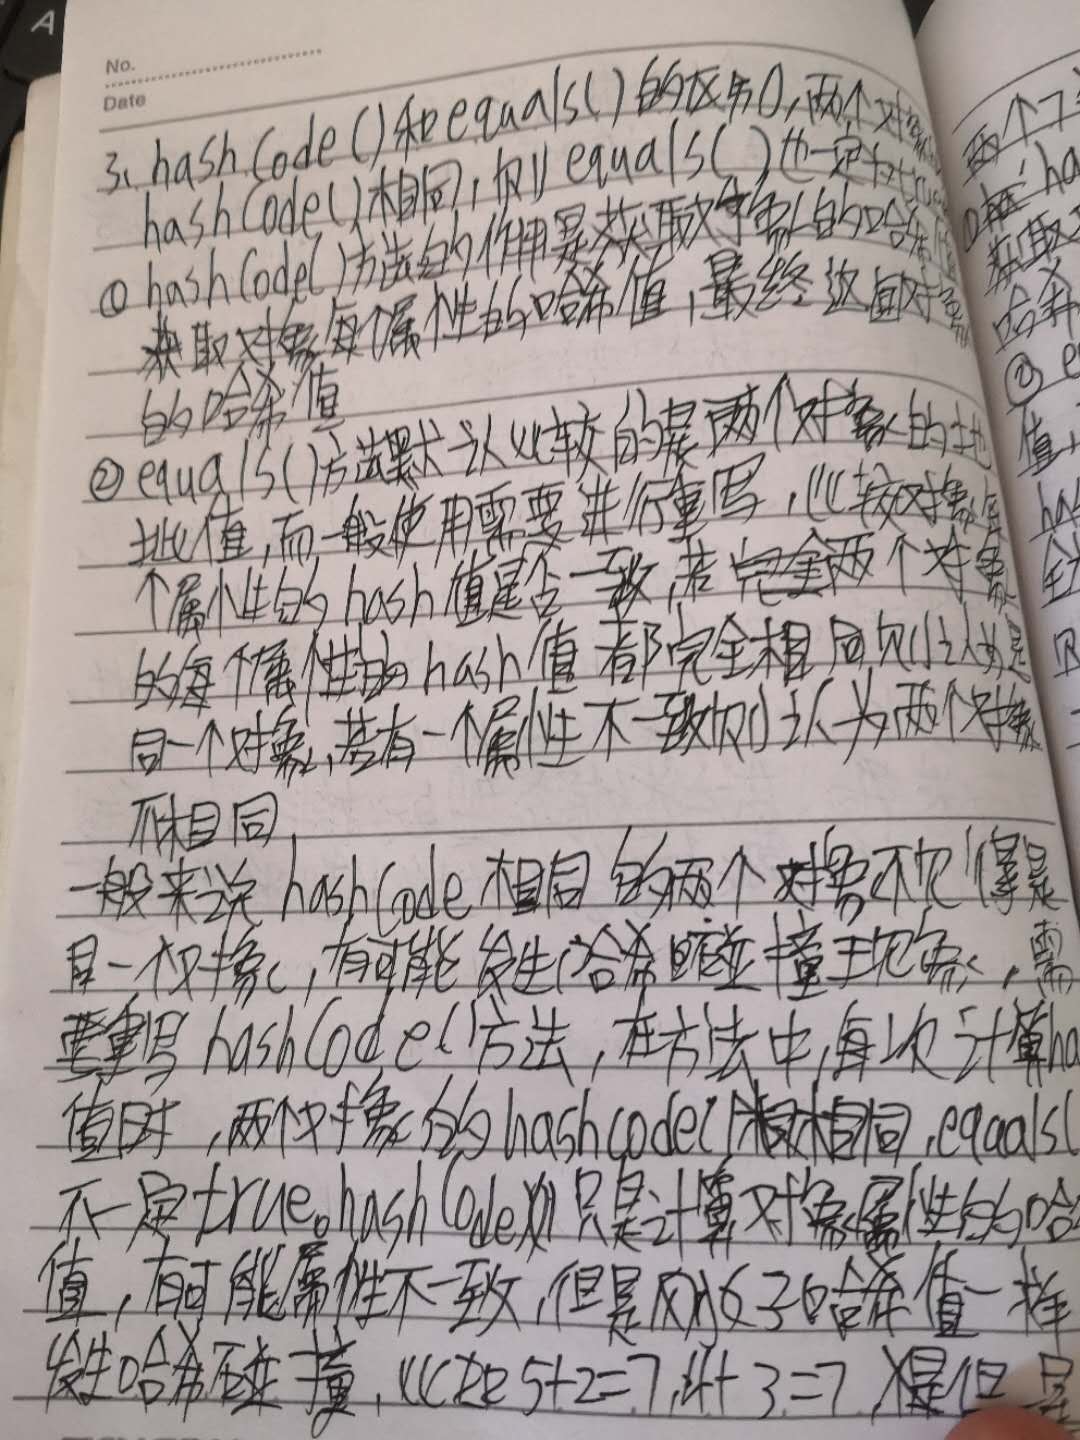 No.
Date
3、hashCode()和equals()的区别,两个对象
hashCode()相同,则equals()也一定为true
①hashCode()方法的作用是获取对象的哈希值
获取对象每个属性的哈希值,最终返回对象
的哈希值
②equals()方法默认比较的是两个对象的地
址值,而一般使用需要进行重写,比较对象每
个属性的hash值是否一致,若两个对象
的每个属性的hash值都完全相同则认为是
同一个对象,若有一个属性不一致则认为两个对象
不相同
一般来说hashCode相同的两个对象不见得是
同一个对象,有可能发生哈希碰撞现象,需
要重写hashCode()方法,在方法中,每次计算ha
值时,两个对象的hashcode()相同,equals(
不一定true。hashCode只是计算对象属性的哈
值,有可能属性不一致,但是哈希值一样
发生哈希碰撞,比如5+2=7,4+3=7,但是
两个
①
ha
获取
哈希
②e
值,
has